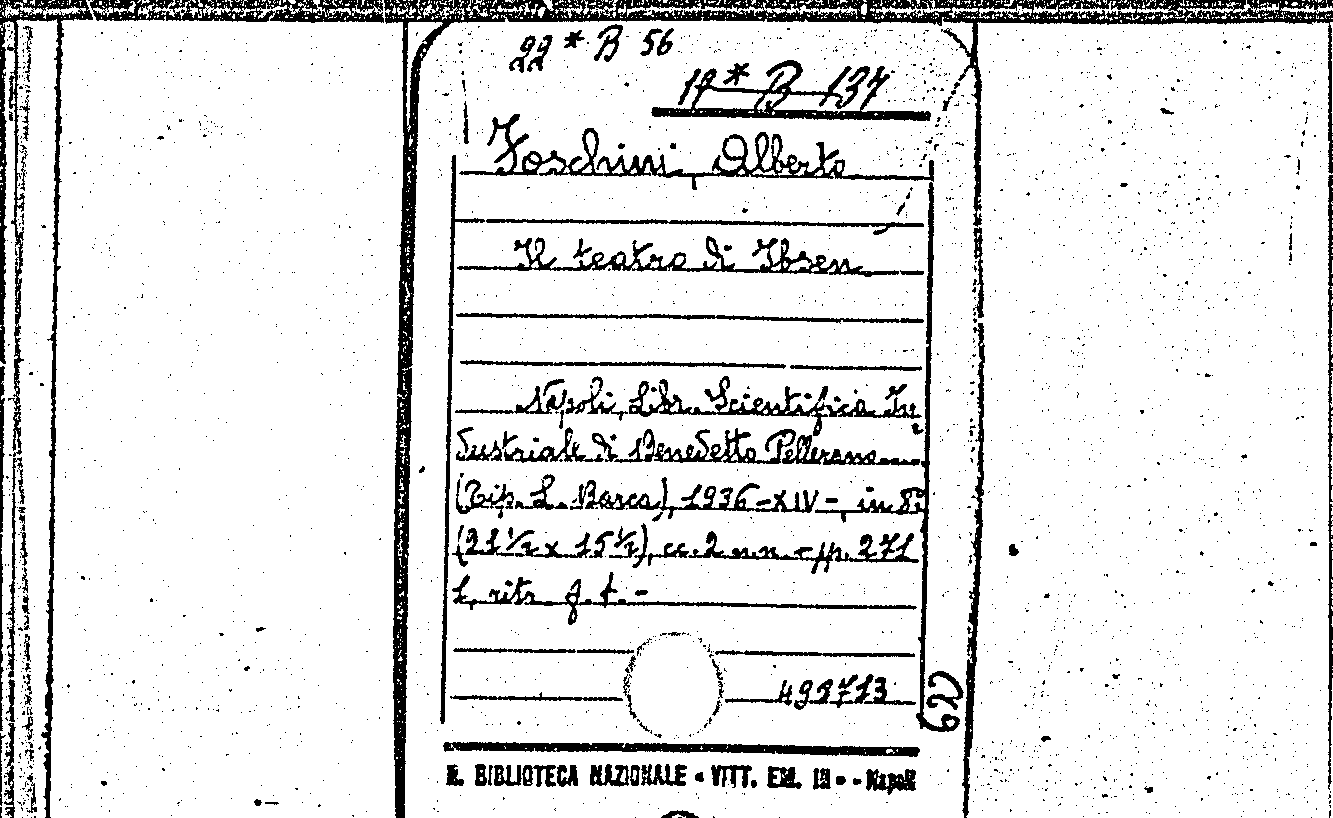 22 * B 56
17 * B 137
Foschini, Alberto
Il teatro di Ibsen.
Napoli, Libr. Scientifica In-
dustriale di Benedetto Pellerano
(Tip. L. Barca), 1936-XIV-, in 8°
(21 ½ x 15 ½), cc. 2 n.n. - pp. 271
1, ritr. f. t. -
492713
62
R. BIBLIOTECA NAZIONALE • VITT. EM. III • - Napoli